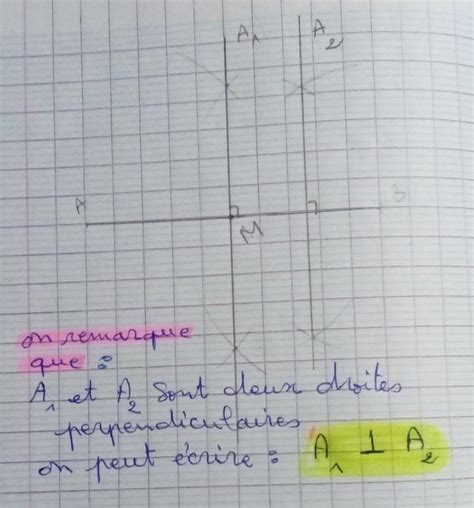 A₁ A₂
A B
M
on remarque
que :
A₁ et A₂ sont deux droites
perpendiculaires
on peut écrire : A₁ ⊥ A₂